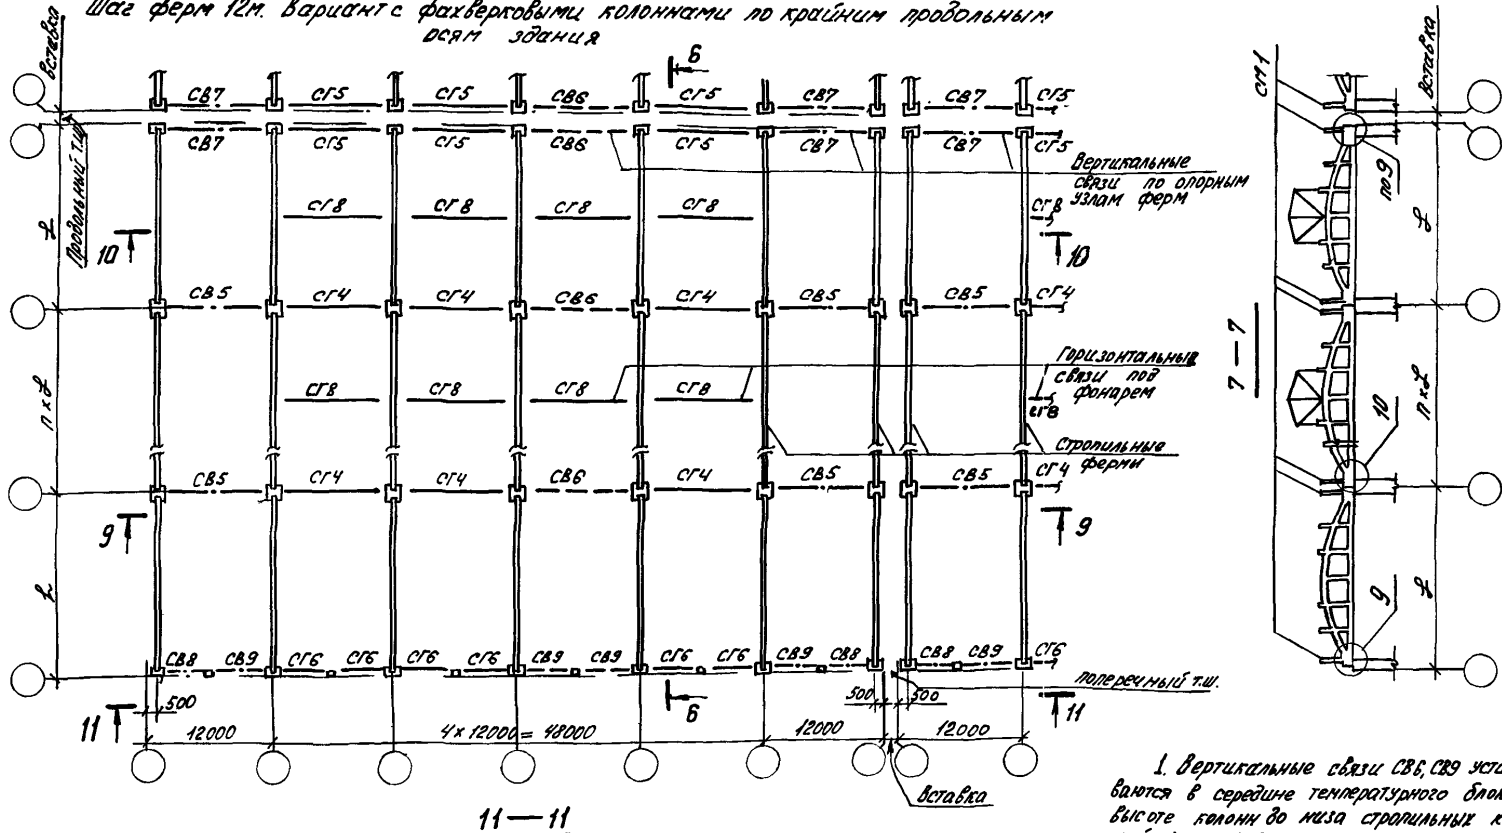 Шаг ферм 12м. Вариант с фахверковыми колоннами по крайним продольным
осям здания
Вставка
6
СВ7 СГ5 СГ5 СВ6 СГ5 СВ7 СВ7 СГ5
СВ7 СГ5 СГ5 СВ6 СГ5 СВ7 СВ7 СГ5
Продольный т.ш.
Вертикальные
связи по опорным
узлам ферм
СГ8 СГ8 СГ8 СГ8 СГ8
L
10 10
СВ5 СГ4 СГ4 СВ6 СГ4 СВ5 СВ5 СГ4
Горизонтальные
связи под
фонарем
СГ8 СГ8 СГ8 СГ8 СГ8
n x L
Стропильные
фермы
СВ5 СГ4 СГ4 СВ6 СГ4 СВ5 СВ5 СГ4
9 9
L
СВ8 СВ9 СГ6 СГ6 СГ6 СГ6 СВ9 СВ9 СГ6 СГ6 СВ9 СВ8 СВ8 СВ9 СГ6
поперечный т.ш.
500 500 500
11 6 11
12000 4 x 12000 = 48000 12000 12000
Вставка
11 — 11
СМ1
Вставка
по 9
L
7 — 7
10
n x L
9
L
1. Вертикальные связи СВ6, СВ9 уста
ваются в середине температурного блок
высоте колонн до низа стропильных к